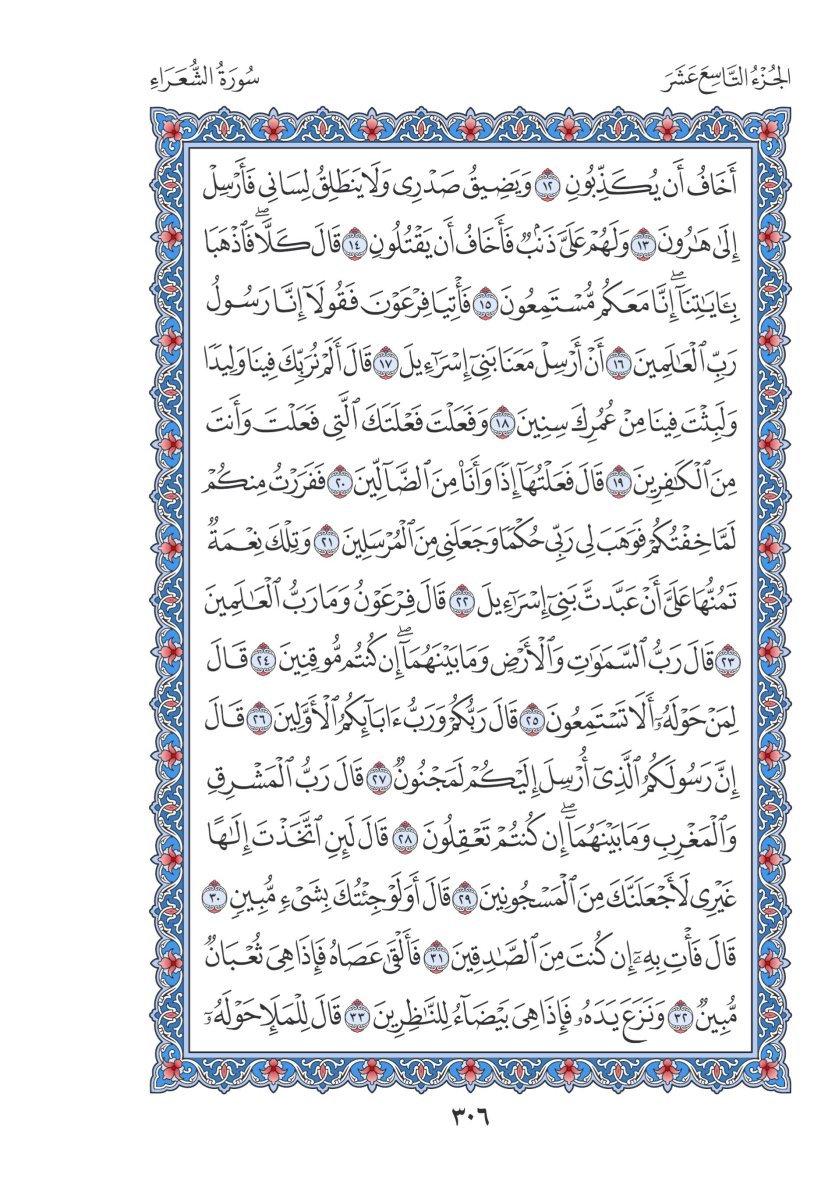 الجُزْءُ التَّاسِعَ عَشَرَ
سُورَةُ الشُّعَرَاءِ
أَخَافُ أَن يُكَذِّبُونِ ١٢ وَيَضِيقُ صَدْرِى وَلَا يَنطَلِقُ لِسَانِى فَأَرْسِلْ
إِلَىٰ هَٰرُونَ ١٣ وَلَهُمْ عَلَىَّ ذَنۢبٌ فَأَخَافُ أَن يَقْتُلُونِ ١٤ قَالَ كَلَّاۖ فَٱذْهَبَا
بِـَٔايَٰتِنَآۖ إِنَّا مَعَكُم مُّسْتَمِعُونَ ١٥ فَأْتِيَا فِرْعَوْنَ فَقُولَآ إِنَّا رَسُولُ
رَبِّ ٱلْعَٰلَمِينَ ١٦ أَنْ أَرْسِلْ مَعَنَا بَنِىٓ إِسْرَٰٓءِيلَ ١٧ قَالَ أَلَمْ نُرَبِّكَ فِينَا وَلِيدًا
وَلَبِثْتَ فِينَا مِنْ عُمُرِكَ سِنِينَ ١٨ وَفَعَلْتَ فَعْلَتَكَ ٱلَّتِى فَعَلْتَ وَأَنتَ
مِنَ ٱلْكَٰفِرِينَ ١٩ قَالَ فَعَلْتُهَآ إِذًا وَأَنَا۠ مِنَ ٱلضَّآلِّينَ ٢٠ فَفَرَرْتُ مِنكُمْ
لَمَّا خِفْتُكُمْ فَوَهَبَ لِى رَبِّى حُكْمًا وَجَعَلَنِى مِنَ ٱلْمُرْسَلِينَ ٢١ وَتِلْكَ نِعْمَةٌ
تَمُنُّهَا عَلَىَّ أَنْ عَبَّدتَّ بَنِىٓ إِسْرَٰٓءِيلَ ٢٢ قَالَ فِرْعَوْنُ وَمَا رَبُّ ٱلْعَٰلَمِينَ
٢٣ قَالَ رَبُّ ٱلسَّمَٰوَٰتِ وَٱلْأَرْضِ وَمَا بَيْنَهُمَآۖ إِن كُنتُم مُّوقِنِينَ ٢٤ قَالَ
لِمَنْ حَوْلَهُۥٓ أَلَا تَسْتَمِعُونَ ٢٥ قَالَ رَبُّكُمْ وَرَبُّ ءَابَآئِكُمُ ٱلْأَوَّلِينَ ٢٦ قَالَ
إِنَّ رَسُولَكُمُ ٱلَّذِىٓ أُرْسِلَ إِلَيْكُمْ لَمَجْنُونٌ ٢٧ قَالَ رَبُّ ٱلْمَشْرِقِ
وَٱلْمَغْرِبِ وَمَا بَيْنَهُمَآۖ إِن كُنتُمْ تَعْقِلُونَ ٢٨ قَالَ لَئِنِ ٱتَّخَذْتَ إِلَٰهًا
غَيْرِى لَأَجْعَلَنَّكَ مِنَ ٱلْمَسْجُونِينَ ٢٩ قَالَ أَوَلَوْ جِئْتُكَ بِشَىْءٍ مُّبِينٍ ٣٠
قَالَ فَأْتِ بِهِۦٓ إِن كُنتَ مِنَ ٱلصَّٰدِقِينَ ٣١ فَأَلْقَىٰ عَصَاهُ فَإِذَا هِىَ ثُعْبَانٌ
مُّبِينٌ ٣٢ وَنَزَعَ يَدَهُۥ فَإِذَا هِىَ بَيْضَآءُ لِلنَّٰظِرِينَ ٣٣ قَالَ لِلْمَلَإِ حَوْلَهُۥٓ
٣٠٦